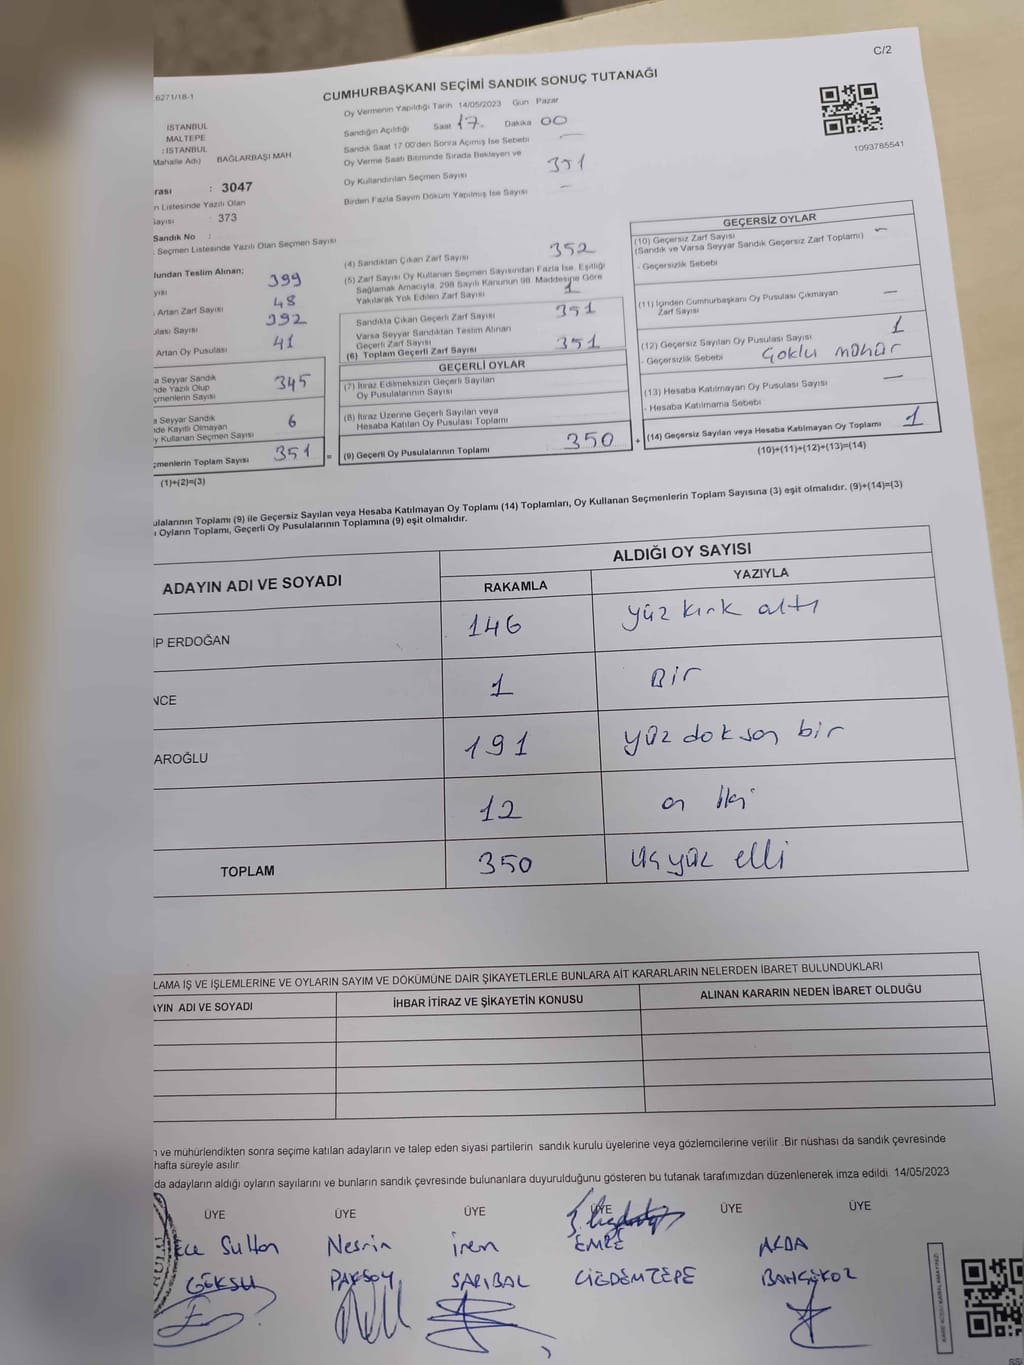 C/2
6271/18-1
CUMHURBAŞKANI SEÇİMİ SANDIK SONUÇ TUTANAĞI
Oy Vermenin Yapıldığı Tarih 14/05/2023 Gün Pazar
Sandığın Açıldığı Saat 17. Dakika 00
Sandık Saat 17.00'den Sonra Açımış İse Sebebi —
Oy Verme Saati Bitiminde Sırada Bekleyen ve
Oy Kullandırılan Seçmen Sayısı 351
Birden Fazla Sayım Döküm Yapılmış İse Sayısı —
1093785541
İSTANBUL
MALTEPE
: İSTANBUL
Mahalle Adı) BAĞLARBAŞI MAH
rası : 3047
n Listesinde Yazılı Olan
sayısı : 373
Sandık No :
Seçmen Listesinde Yazılı Olan Seçmen Sayısı
lundan Teslim Alınan;
yısı 399
Artan Zarf Sayısı 48
ulası Sayısı 392
Artan Oy Pusulası 41
a Seyyar Sandık
nde Yazılı Olup
çmenlerin Sayısı 345
a Seyyar Sandık
nde Kayıtlı Olmayan
y Kullanan Seçmen Sayısı 6
çmenlerin Toplam Sayısı 351 =
(1)+(2)=(3)
(4) Sandıktan Çıkan Zarf Sayısı 352
(5) Zarf Sayısı Oy Kullanan Seçmen Sayısından Fazla İse, Eşitliği
Sağlamak Amacıyla, 298 Sayılı Kanunun 98. Maddesine Göre
Yakılarak Yok Edilen Zarf Sayısı 1
Sandıkta Çıkan Geçerli Zarf Sayısı 351
Varsa Seyyar Sandıktan Teslim Alınan
Geçerli Zarf Sayısı
(6) Toplam Geçerli Zarf Sayısı 351
GEÇERLİ OYLAR
(7) İtiraz Edilmeksizin Geçerli Sayılan
Oy Pusulalarının Sayısı
(8) İtiraz Üzerine Geçerli Sayılan veya
Hesaba Katılan Oy Pusulası Toplamı
(9) Geçerli Oy Pusulalarının Toplamı 350 +
GEÇERSİZ OYLAR
(10) Geçersiz Zarf Sayısı —
(Sandık ve Varsa Seyyar Sandık Geçersiz Zarf Toplamı)
- Geçersizlik Sebebi
(11) İçinden Cumhurbaşkanı Oy Pusulası Çıkmayan
Zarf Sayısı —
(12) Geçersiz Sayılan Oy Pusulası Sayısı 1
- Geçersizlik Sebebi Çoklu mühür
(13) Hesaba Katılmayan Oy Pusulası Sayısı —
- Hesaba Katılmama Sebebi
(14) Geçersiz Sayılan veya Hesaba Katılmayan Oy Toplamı 1
(10)+(11)+(12)+(13)=(14)
ulalarının Toplamı (9) ile Geçersiz Sayılan veya Hesaba Katılmayan Oy Toplamı (14) Toplamları, Oy Kullanan Seçmenlerin Toplam Sayısına (3) eşit olmalıdır. (9)+(14)=(3)
ı Oyların Toplamı, Geçerli Oy Pusulalarının Toplamına (9) eşit olmalıdır.
ADAYIN ADI VE SOYADI
ALDIĞI OY SAYISI
RAKAMLA YAZIYLA
İP ERDOĞAN 146 yüz kırk altı
NCE 1 Bir
AROĞLU 191 yüz doksan bir
12 on iki
TOPLAM 350 üç yüz elli
LAMA İŞ VE İŞLEMLERİNE VE OYLARIN SAYIM VE DÖKÜMÜNE DAİR ŞİKAYETLERLE BUNLARA AİT KARARLARIN NELERDEN İBARET BULUNDUKLARI
AYIN ADI VE SOYADI İHBAR İTİRAZ VE ŞİKAYETİN KONUSU ALINAN KARARIN NEDEN İBARET OLDUĞU
n ve mühürlendikten sonra seçime katılan adayların ve talep eden siyasi partilerin sandık kurulu üyelerine veya gözlemcilerine verilir .Bir nüshası da sandık çevresinde
hafta süreyle asılır.
da adayların aldığı oyların sayılarını ve bunların sandık çevresinde bulunanlara duyurulduğunu gösteren bu tutanak tarafımızdan düzenlenerek imza edildi. 14/05/2023
ÜYE ÜYE ÜYE ÜYE ÜYE ÜYE
Ece Sultan Nesrin İren EMRE ARDA
GÖKSU PAKSOY SARIBAL ÇİĞDEMTEPE BAHÇEKOZ